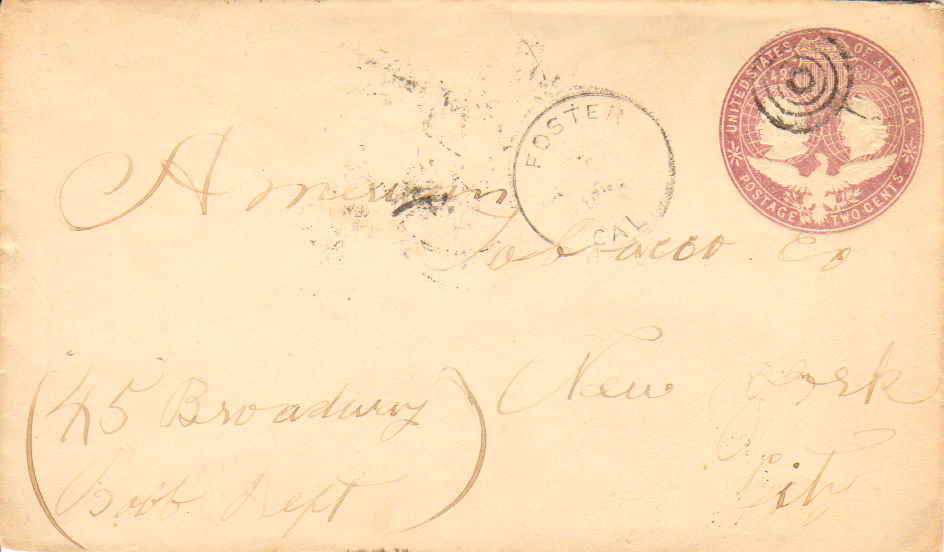 UNITED STATES OF AMERICA
POSTAGE TWO CENTS
FOSTER
CAL
American
Tobacco Co
New York
City
(45 Broadway
Book Dept)